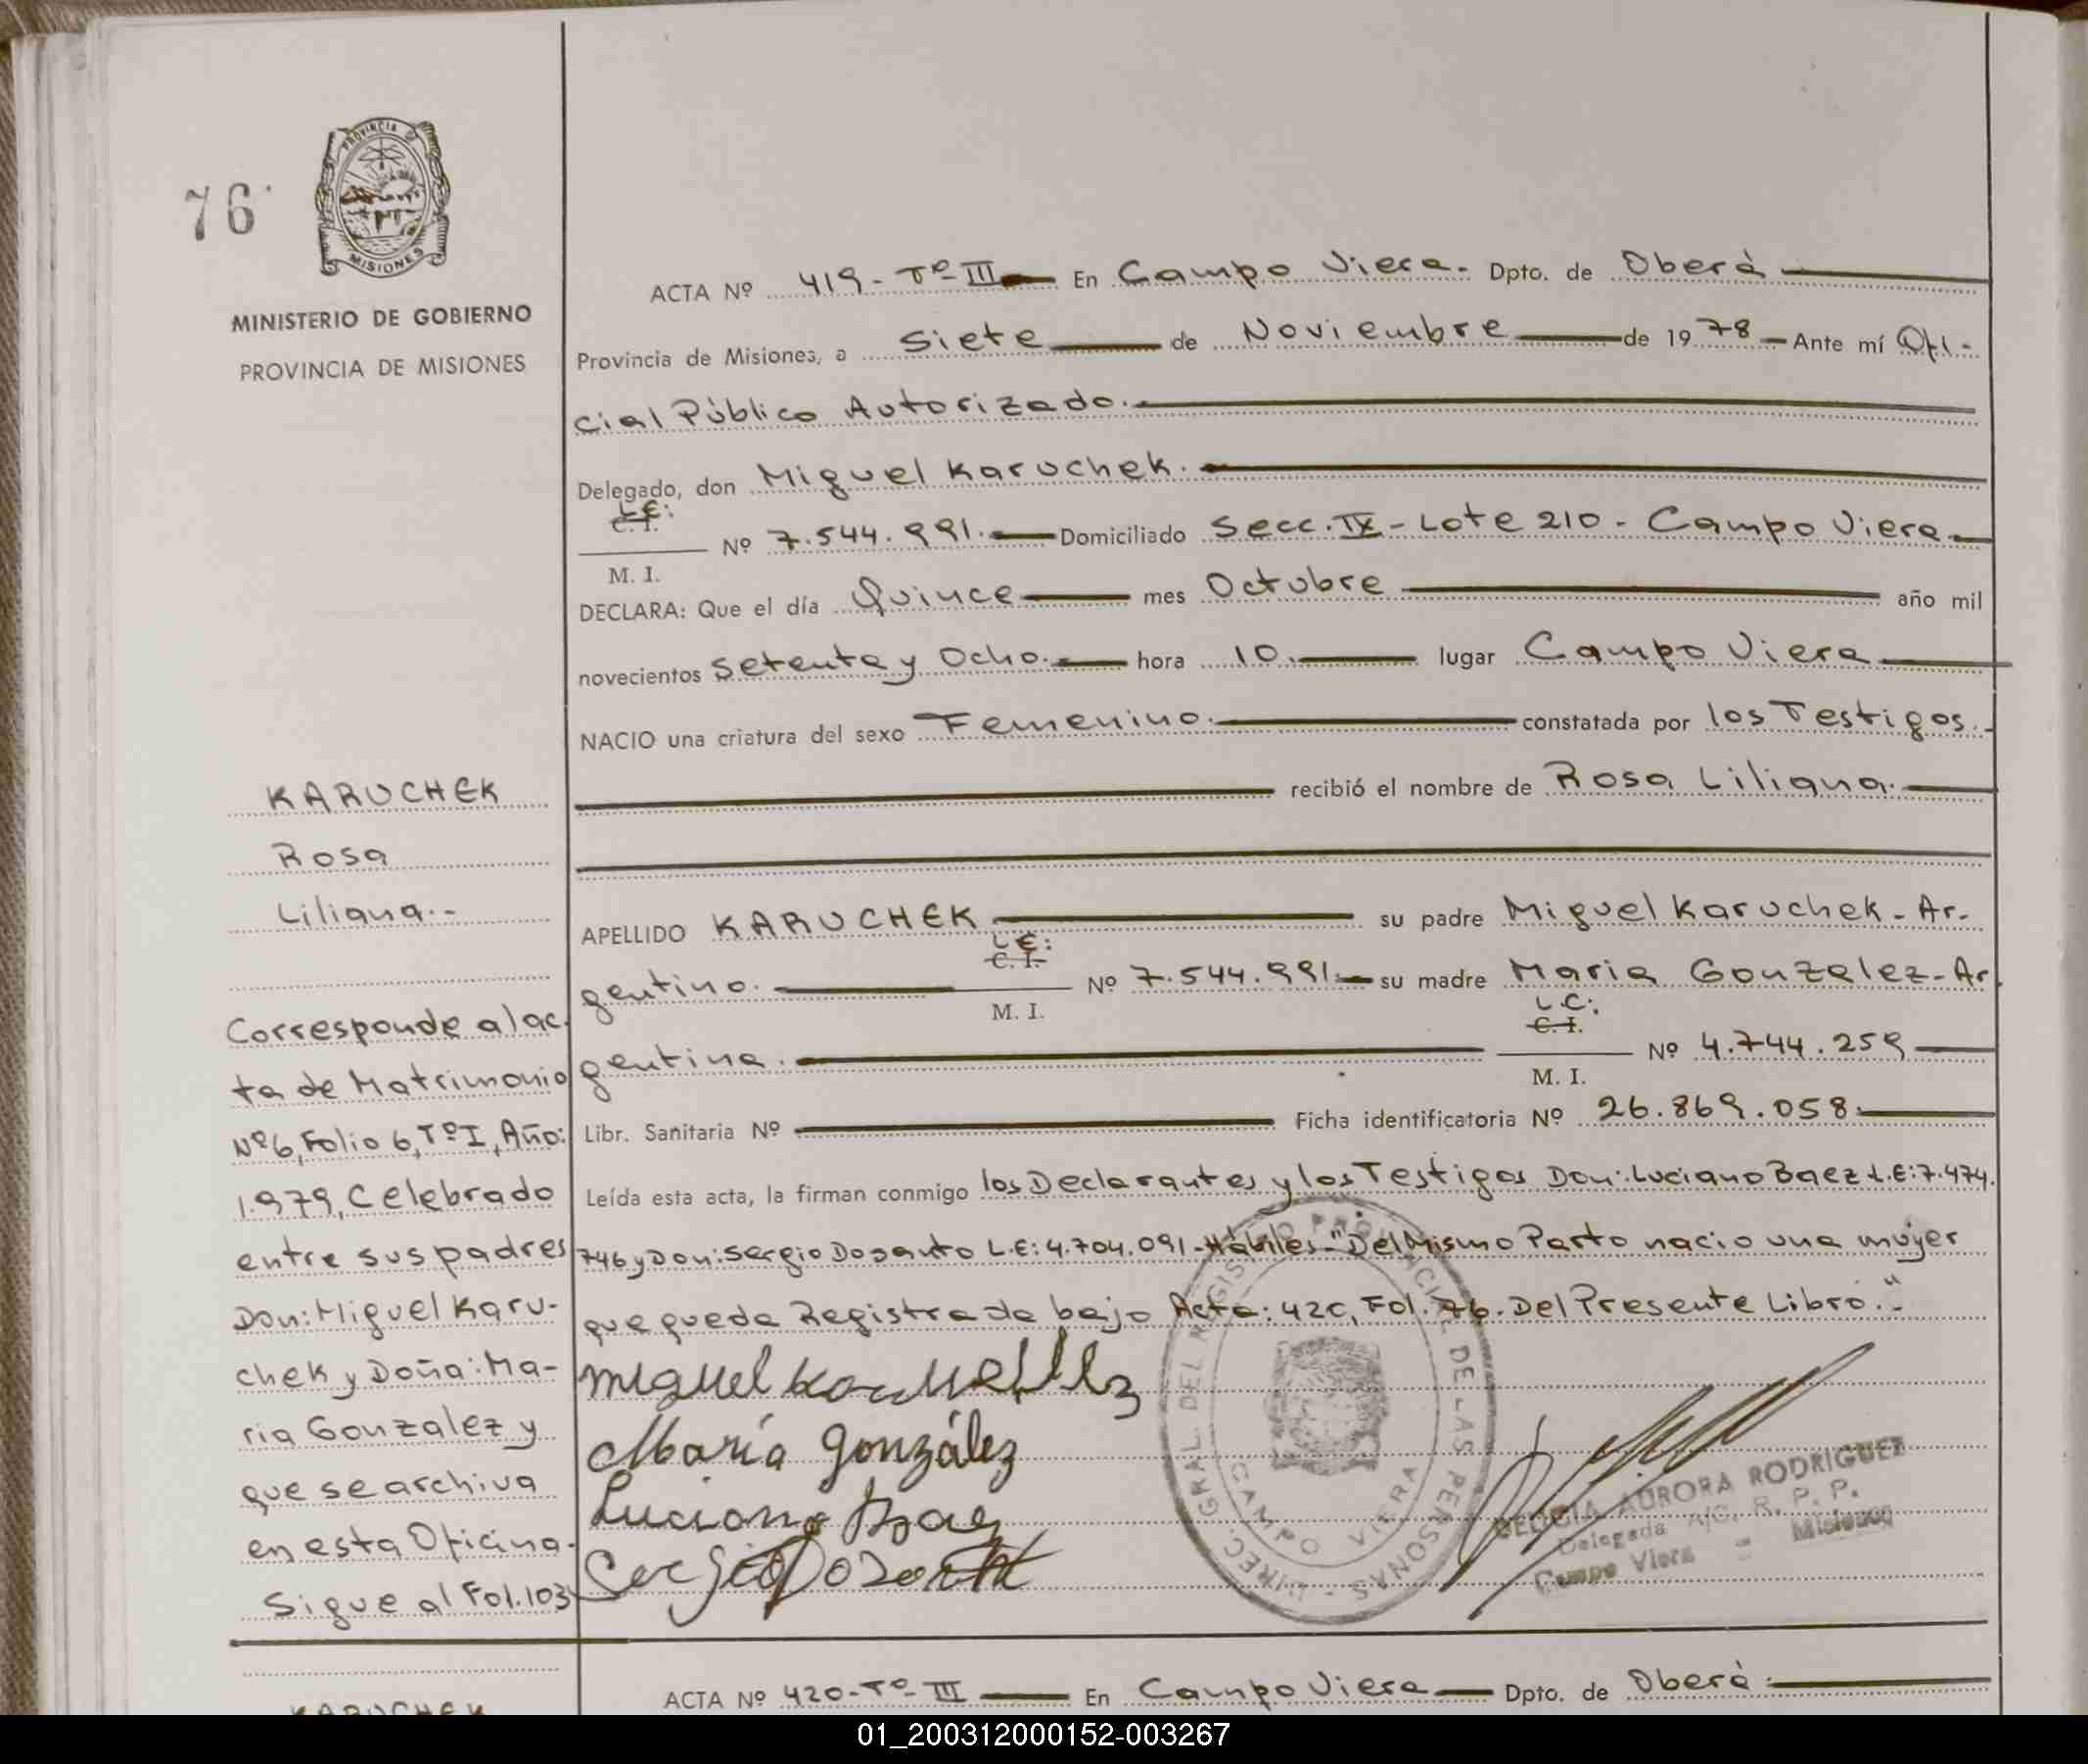 76
PROVINCIA DE
MISIONES
MINISTERIO DE GOBIERNO
PROVINCIA DE MISIONES
KARUCHEK
Rosa
Liliana.-
Corresponde al ac-
ta de Matrimonio
Nº6, Folio 6, TºI, Año:
1.979, Celebrado
entre sus padres
Don: Miguel Karu-
chek y Doña: Ma-
ria Gonzalez y
que se archiva
en esta Oficina.
Sigue al Fol. 103
ACTA Nº 419-Tº III En Campo Viera.- Dpto. de Oberá
Provincia de Misiones, a Siete de Noviembre de 1978 Ante mí Ofi-
cial Público Autorizado.
Delegado, don Miguel Karuchek.
L.E:
C. I.
M. I. Nº 7.544.991. Domiciliado Secc. IX - Lote 210 - Campo Viera
DECLARA: Que el día Quince mes Octubre año mil
novecientos Setenta y Ocho. hora 10. lugar Campo Viera
NACIO una criatura del sexo Femenino. constatada por los Testigos.-
recibió el nombre de Rosa Liliana.
APELLIDO KARUCHEK su padre Miguel Karuchek - Ar-
gentino. L.E: C. I. M. I. Nº 7.544.991. su madre Maria Gonzalez - Ar
gentina. L.C: C. I. M. I. Nº 4.744.259
Libr. Sanitaria Nº Ficha identificatoria Nº 26.869.058.
Leída esta acta, la firman conmigo los Declarantes y los Testigos Don: Luciano Baez L.E: 7.474.
746 y Don: Sergio Dosanto L.E: 4.704.091 - Hábiles - "Del Mismo Parto nacio una mujer
que queda Registrada bajo Acta: 420, Fol. 76. Del Presente Libro."-
Miguel Karuchek
María González
Luciano Baez
Sergio Dosanto
DIREC. GRAL. DEL REGISTRO PROVINCIAL DE LAS PERSONAS
CAMPO VIERA
AURORA RODRIGUEZ
Delegada A/C. R. P. P.
Campo Viera - Misiones
ACTA Nº 420-Tº-III En Campo Viera Dpto. de Oberá.
KARUCHEK
01_200312000152-003267